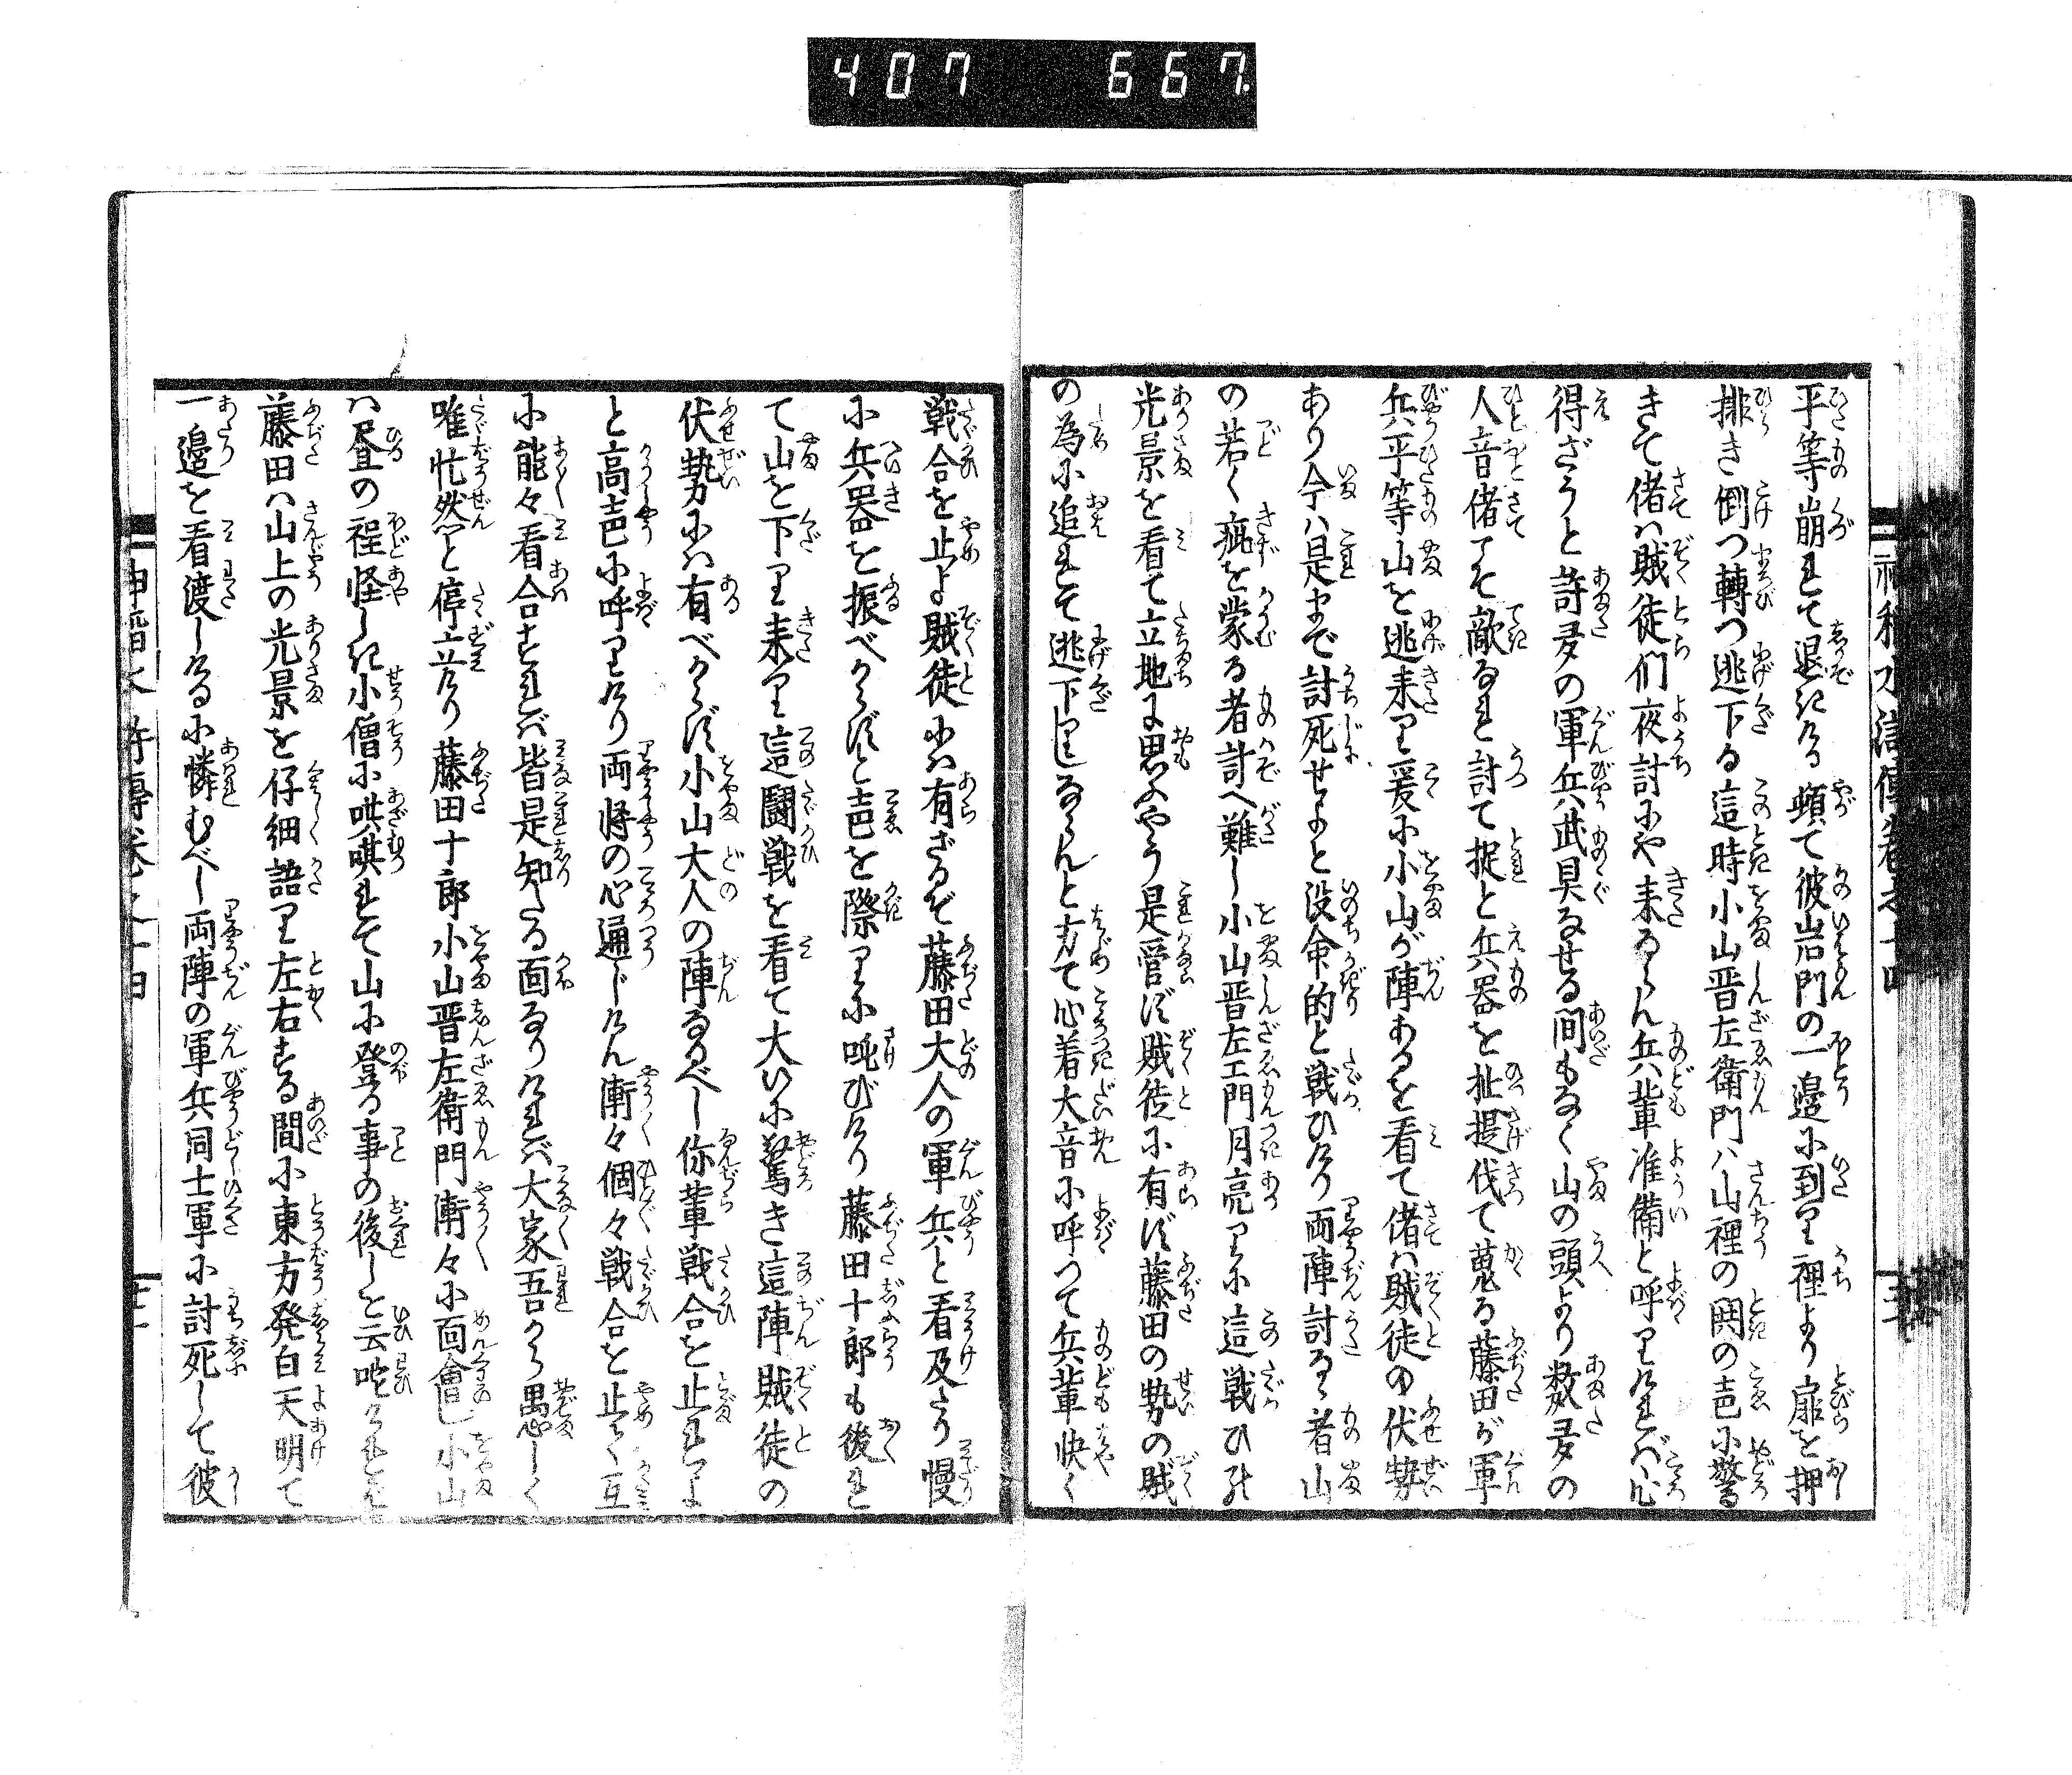 407 667.
平等崩れて退きける頓て彼岩門の一邉に到り裡より扉を押
排き倒つ轉つ逃下る這時小山晋左衛門ハ山裡の鬨の声に驚
きて偖ハ賊徒们夜討にや来るらん兵輩准備と呼りければ心
得ざうと許多の軍兵武具なせる間もなく山の頭より数多の
人音偖てそ敵なれ討て捉と兵器を扯提伐て蒐る藤田が軍
兵平等山を逃来り爰に小山が陣あるを看て偖ハ賊徒の伏勢
あり今ハ是まで討死せよと没命的と戦ひけり両陣討るゝ者山
の若く疵を蒙る者討へ難し小山晋左エ門月亮りに這戦ひの
光景を看て立地に思ふやう是管ず賊徒に有ず藤田の勢の賊
の為に追れて逃下りしならんと才て心着大音に呼つて兵輩快く
戦合を止よ賊徒にハ有ざるぞ藤田大人の軍兵と看及たり慢
に兵器を振べからずと声を際りに吆びけり藤田十郎も後れ
て山を下り来り這闘戦を看て大いに驚き這陣賊徒の
伏勢にハ有べからず小山大人の陣なるべし你輩戦合を止れよ
と高声に呼りけり両将の心通じけん漸々個々戦合を止て互
に能々看合すれバ皆是知たる面なりけれバ大家吾から愚しく
唯忙然と停立けり藤田十郎小山晋左衛門漸々に面會し小山
ハ昼の程怪しき小僧に哄哄れて山に登る事の後しと云咜けれど
藤田ハ山上の光景を仔細語り左右する間に東方発白天明て
一邉を看渡しける小憐むべし両陣の軍兵同士軍に討死して彼